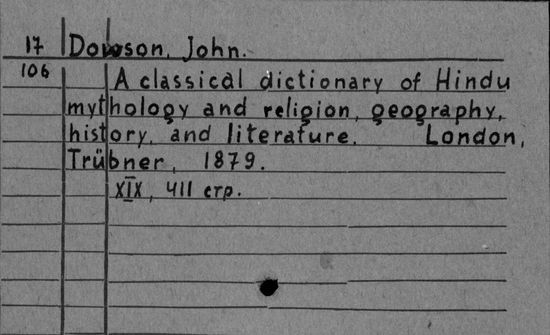 17 Dowson, John.
106
A classical dictionary of Hindu
mythology and religion, geography,
history, and literature. London,
Trübner, 1879.
XIX, 411 стр.